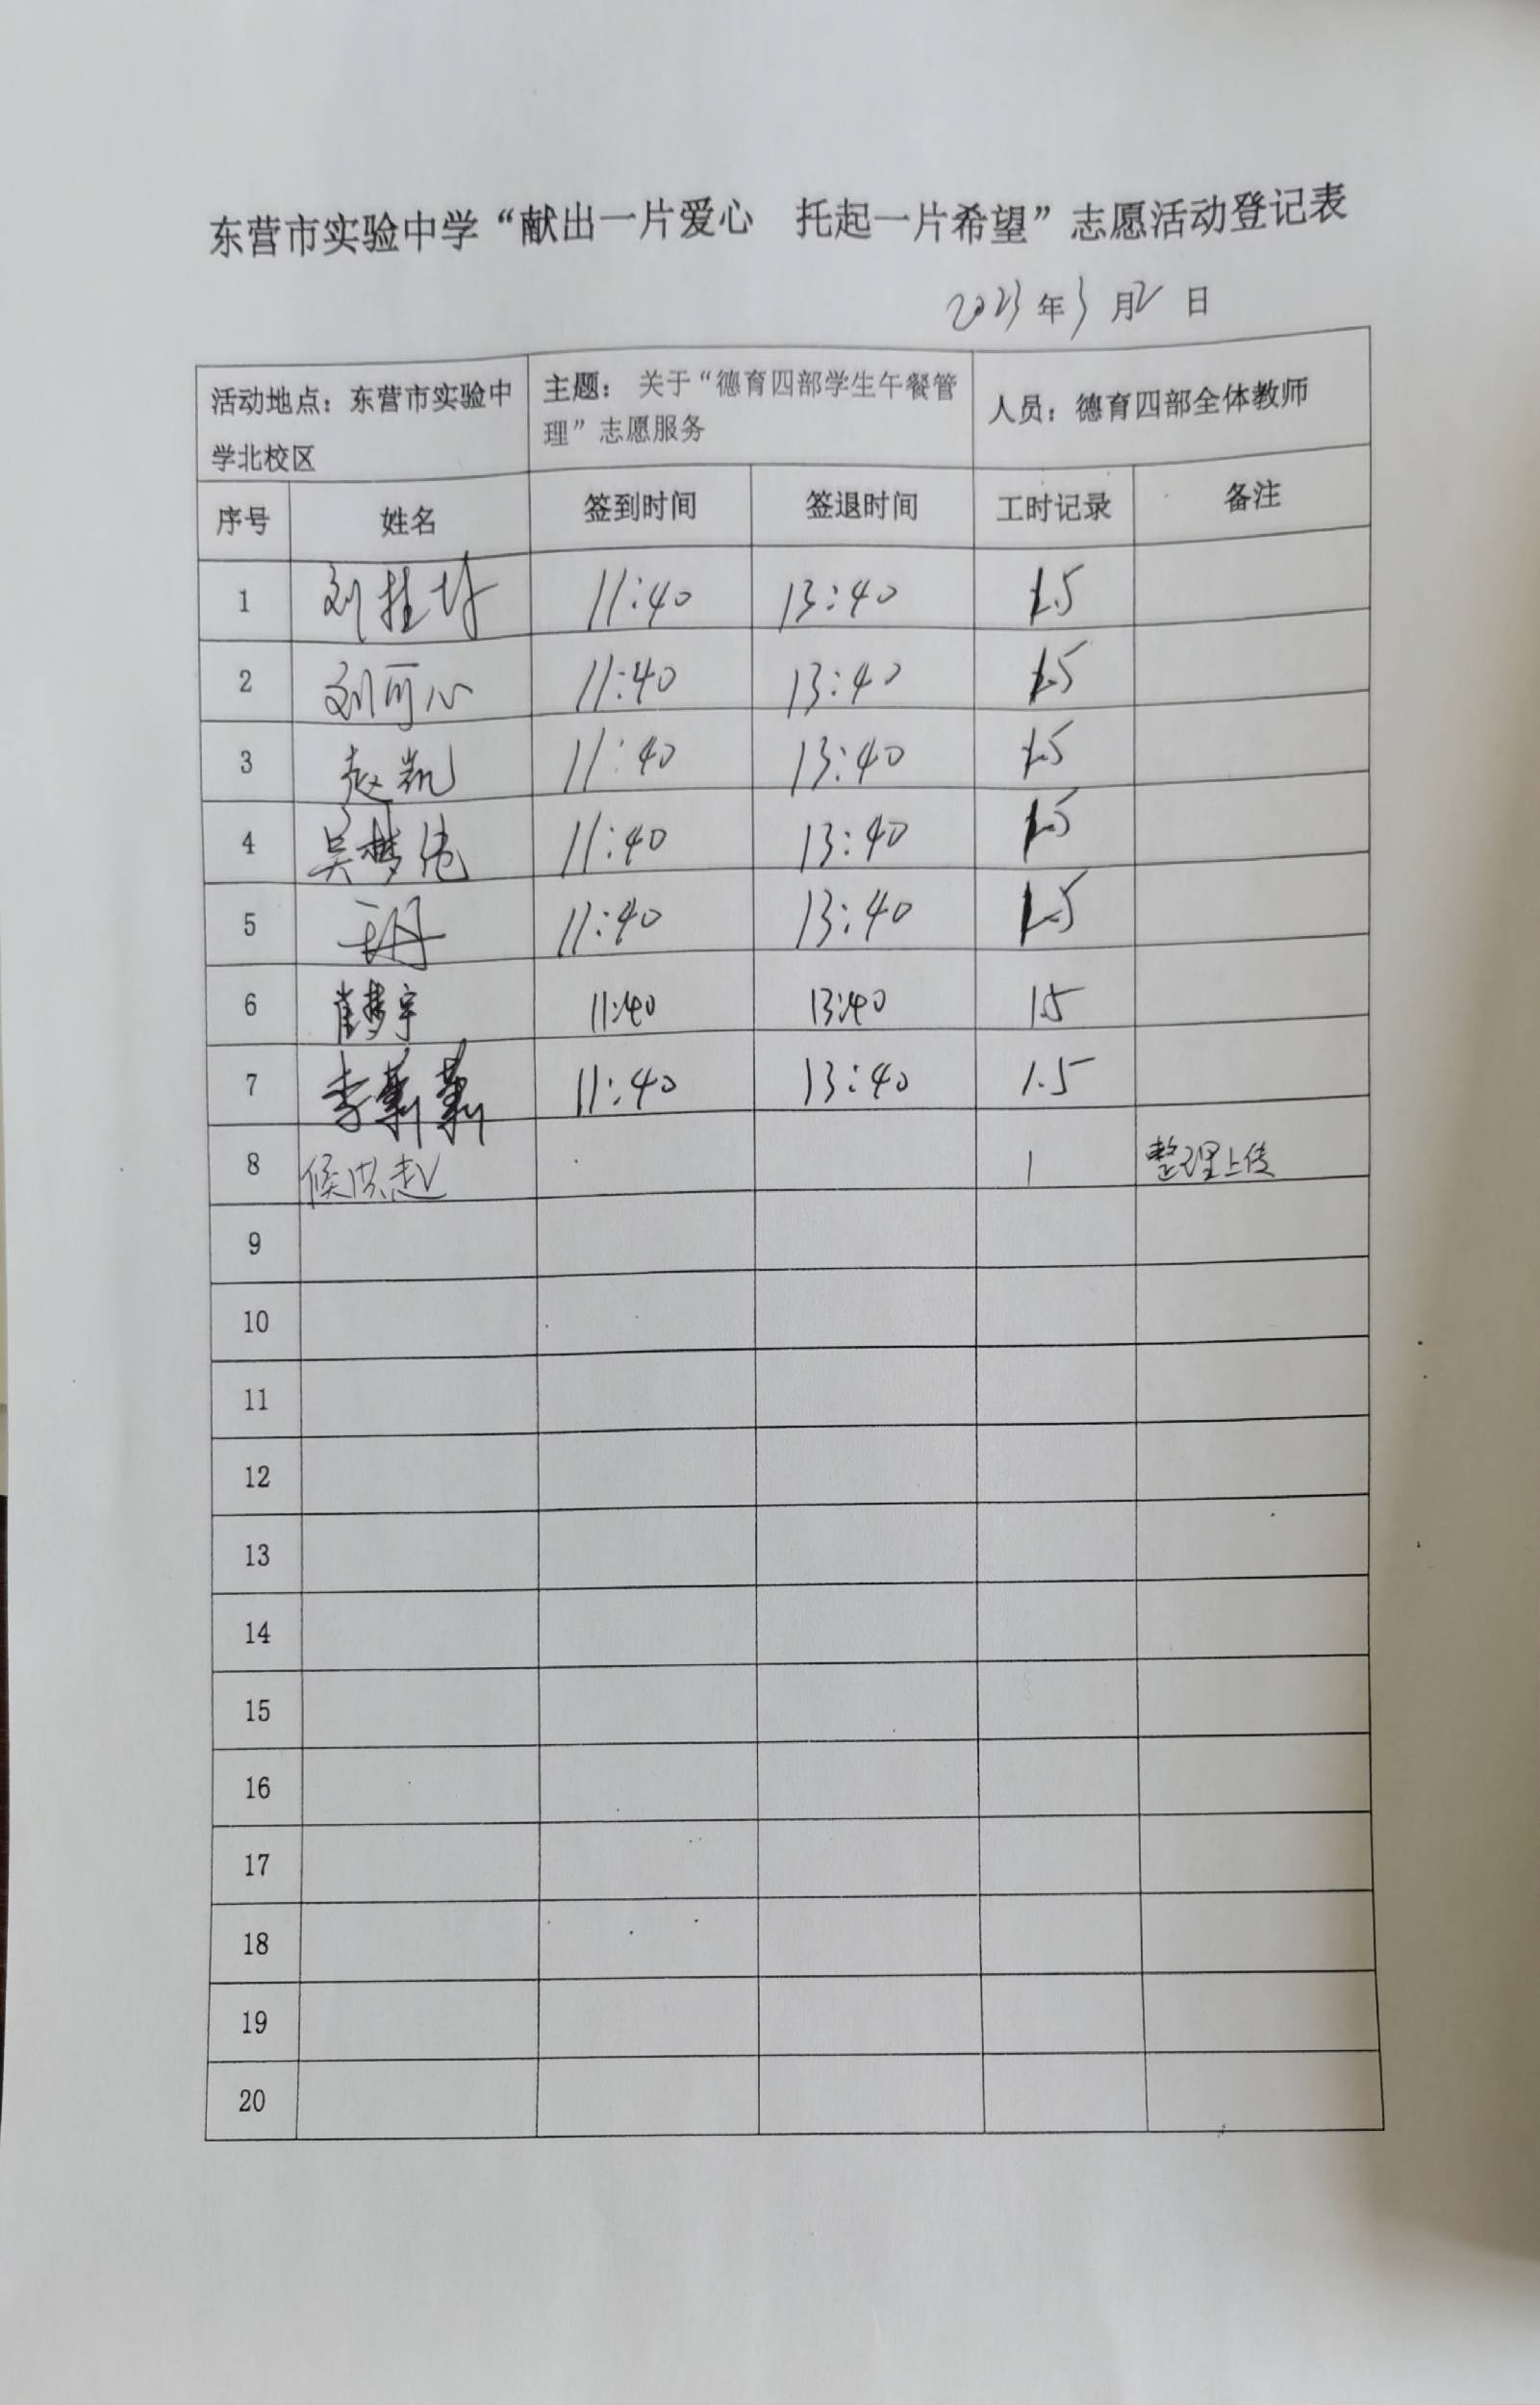 东营市实验中学“献出一片爱心 托起一片希望”志愿活动登记表
2023年3月2日
活动地点：东营市实验中
学北校区
主题：关于“德育四部学生午餐管
理”志愿服务
人员：德育四部全体教师
序号 姓名 签到时间 签退时间 工时记录 备注
1 刘桂 11:40 13:40 1.5
2 刘可心 11:40 13:40 1.5
3 赵凯 11:40 13:40 1.5
4 吴梦 11:40 13:40 1.5
5 11:40 13:40 1.5
6 肖梦宇 11:40 13:40 1.5
7 李 11:40 13:40 1.5
8 侯洪 1 整理上传
9
10
11
12
13
14
15
16
17
18
19
20